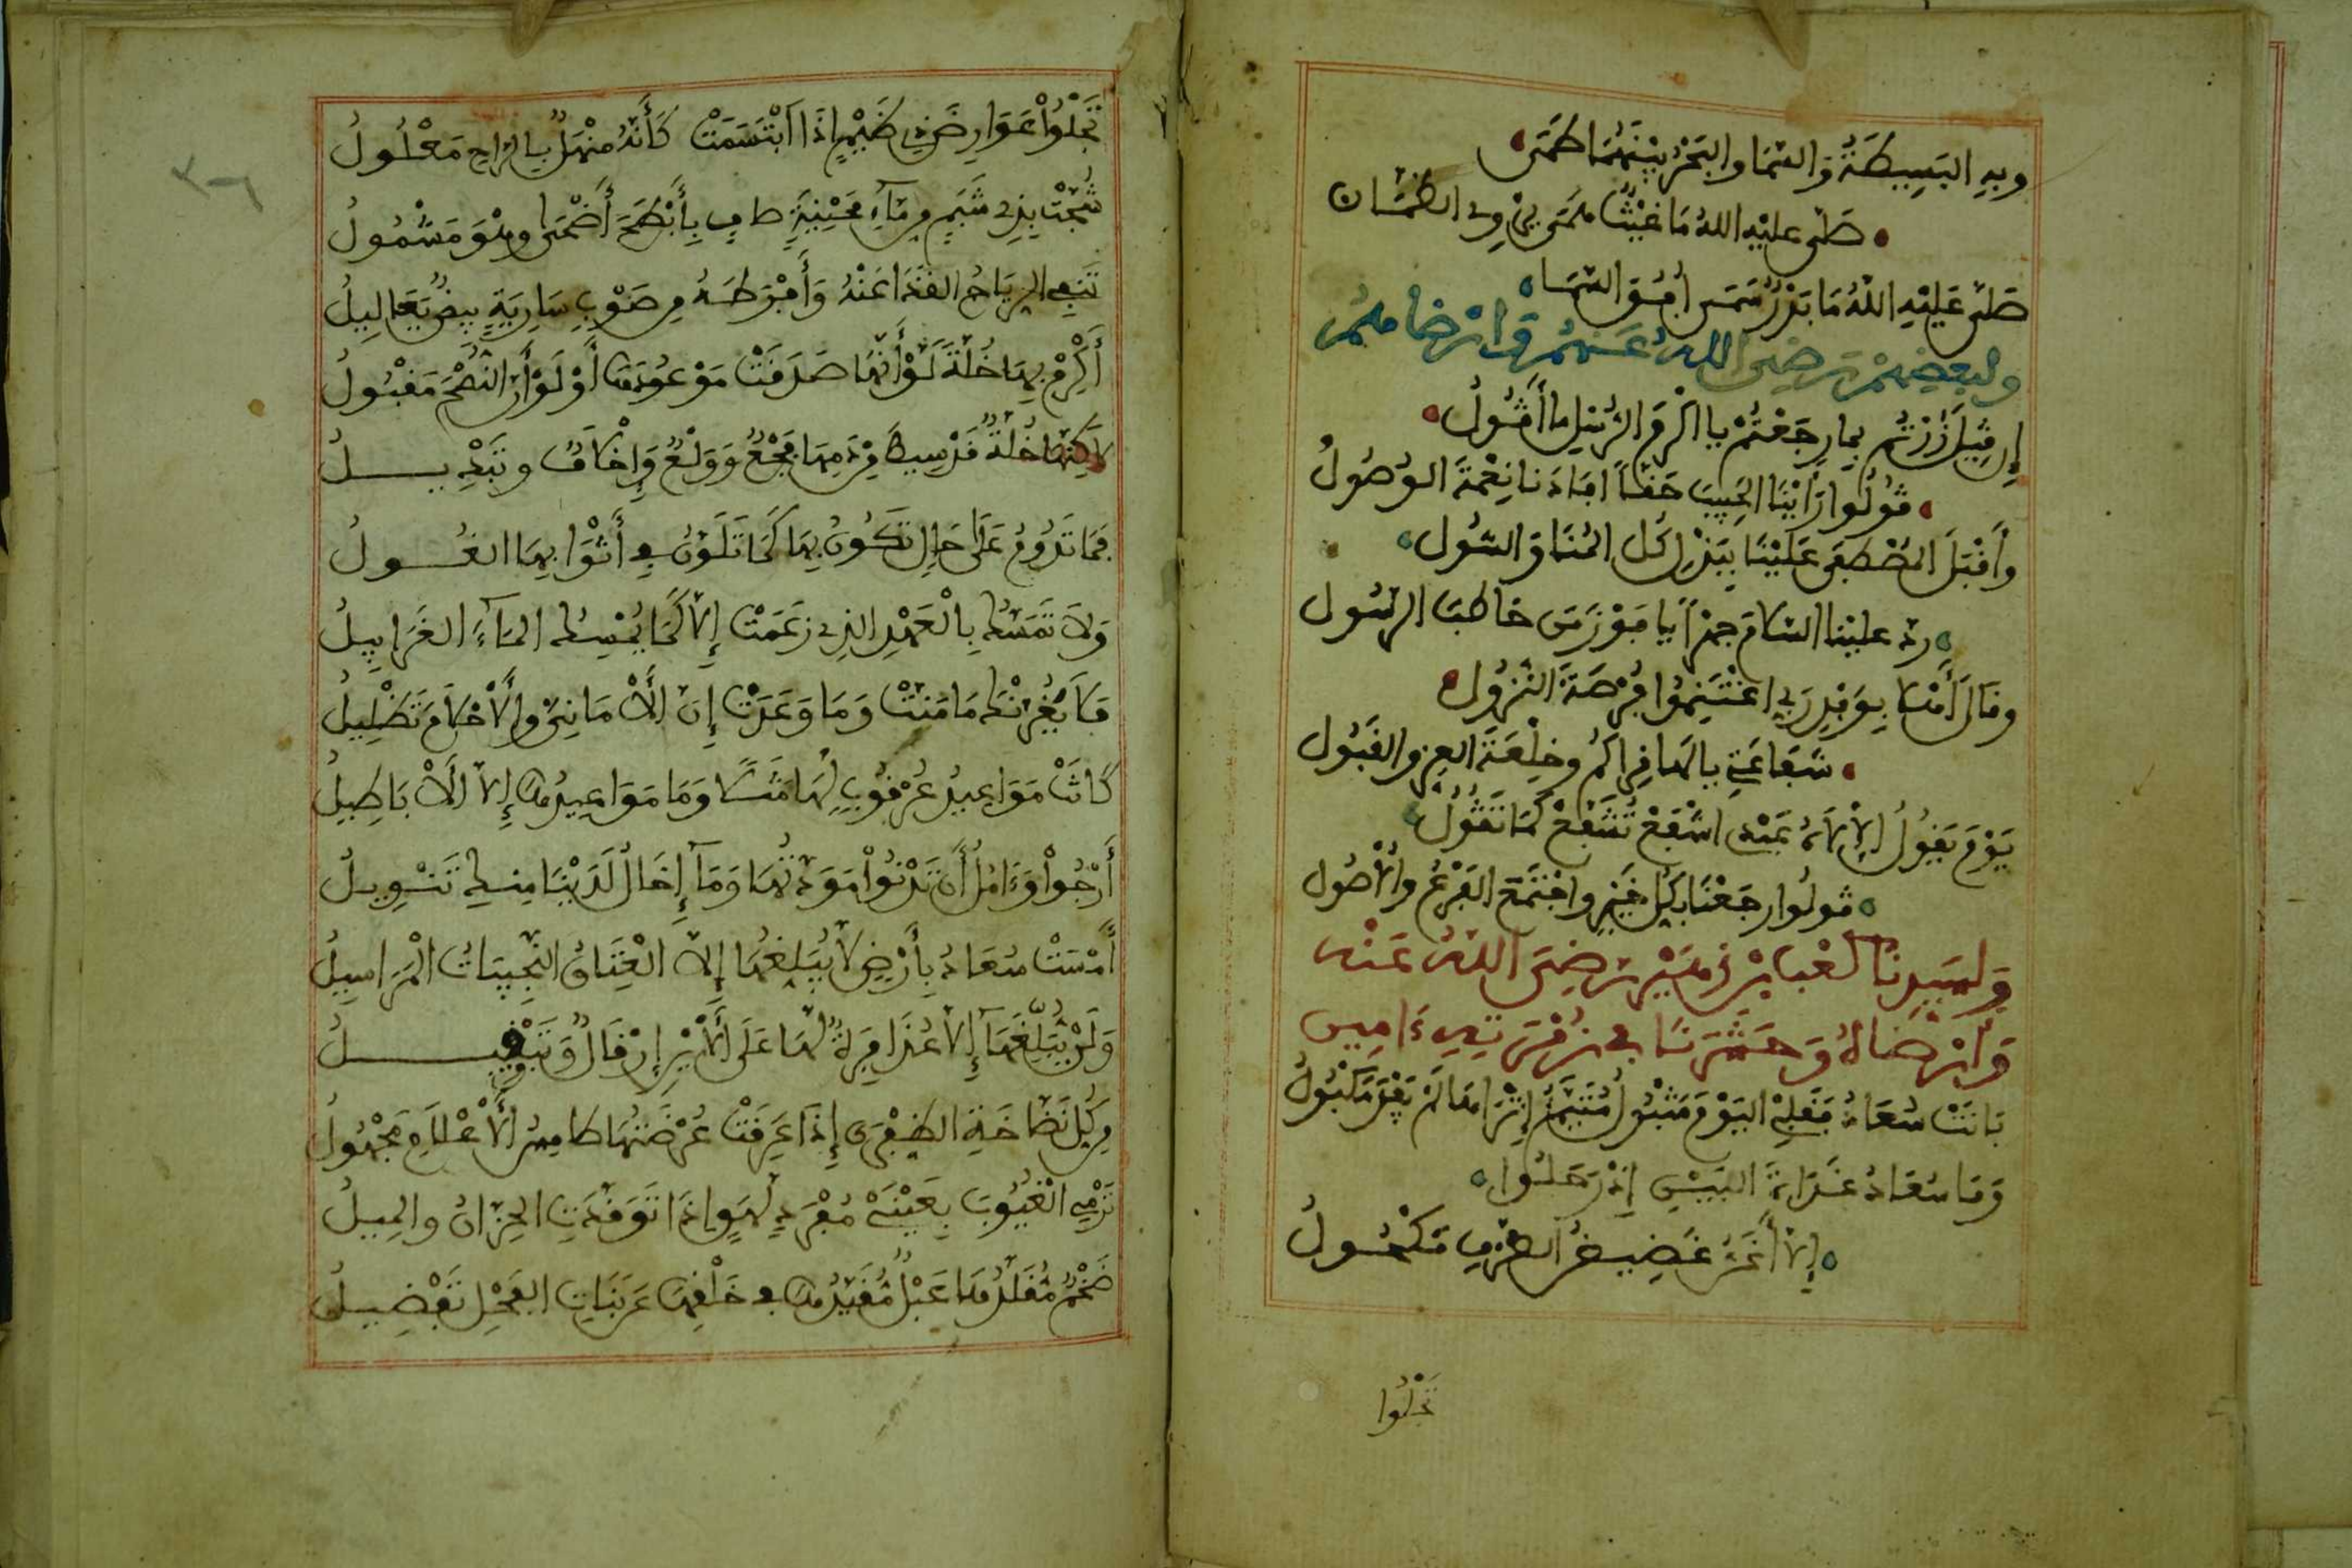 وبه البسيطة والسما والبحر بينهما طمى
صلى عليه الله ما غيث همى
صلى عليه الله ما بدر سمى أفق السما
ولبعضهم رضي الله عنهم وأرضاهم
إن قيل زرتم بما رجعتم يا أكرم الرسل ما أقول
قولوا رأينا الحبيب حقا أفادنا نعمة الوصول
وأقبل المصطفى علينا ببذل كل المنا والسول
رد علينا السلام جهرا يا فوز من خاطب الرسول
وقال أهلا بوفد ربي اغتنموا فرصة النزول
شفاعتي يا لها قراكم وخلعة العز والقبول
يوم يقول الإله عبدي اشفع تشفع كما تقول
قولوا رجعنا بكل خير واجتمع الفرع والأصول
ولسيدنا كعب بن زهير رضي الله عنه
وأرضاه وحشرنا في زمرته ءامين
بانت سعاد فقلبي اليوم متبول متيم إثرها لم يفد مكبول
وما سعاد غداة البين إذ رحلوا
إلا أغن غضيض الطرف مكحول
تجلوا
تجلوا عوارض ذي ظلم إذا ابتسمت كأنه منهل بالراح معلول
شجت بذي شبم من ماء محنية صاف بأبطح أضحى وهو مشمول
تنفي الرياح القذا عنه وأفرطه من صوب سارية بيض يعاليل
أكرم بها خلة لو أنها صدقت موعودها أو لو أن النصح مقبول
لكنها خلة قد سيط من دمها فجع وولع وإخلاف وتبديل
فما تدوم على حال تكون بها كما تلون في أثوابها الغول
ولا تمسك بالعهد الذي زعمت إلا كما يمسك الماء الغرابيل
فلا يغرنك ما منت وما وعدت إن الأماني والأحلام تضليل
كانت مواعيد عرقوب لها مثلا وما مواعيدها إلا الأباطيل
أرجوا وءامل أن تدنوا مودتها وما إخال لدينا منك تنويل
أمست سعاد بأرض لا يبلغها إلا العتاق النجيبات المراسيل
ولن يبلغها إلا عذافرة لها على الأين إرقال وتبغيل
من كل نضاخة الذفرى إذا عرقت عرضتها طامس الأعلام مجهول
ترمي الغيوب بعيني مفرد لهق إذا توقدت الحزان والميل
ضخم مقلدها عبل مقيدها في خلقها عن بنات الفحل تفضيل